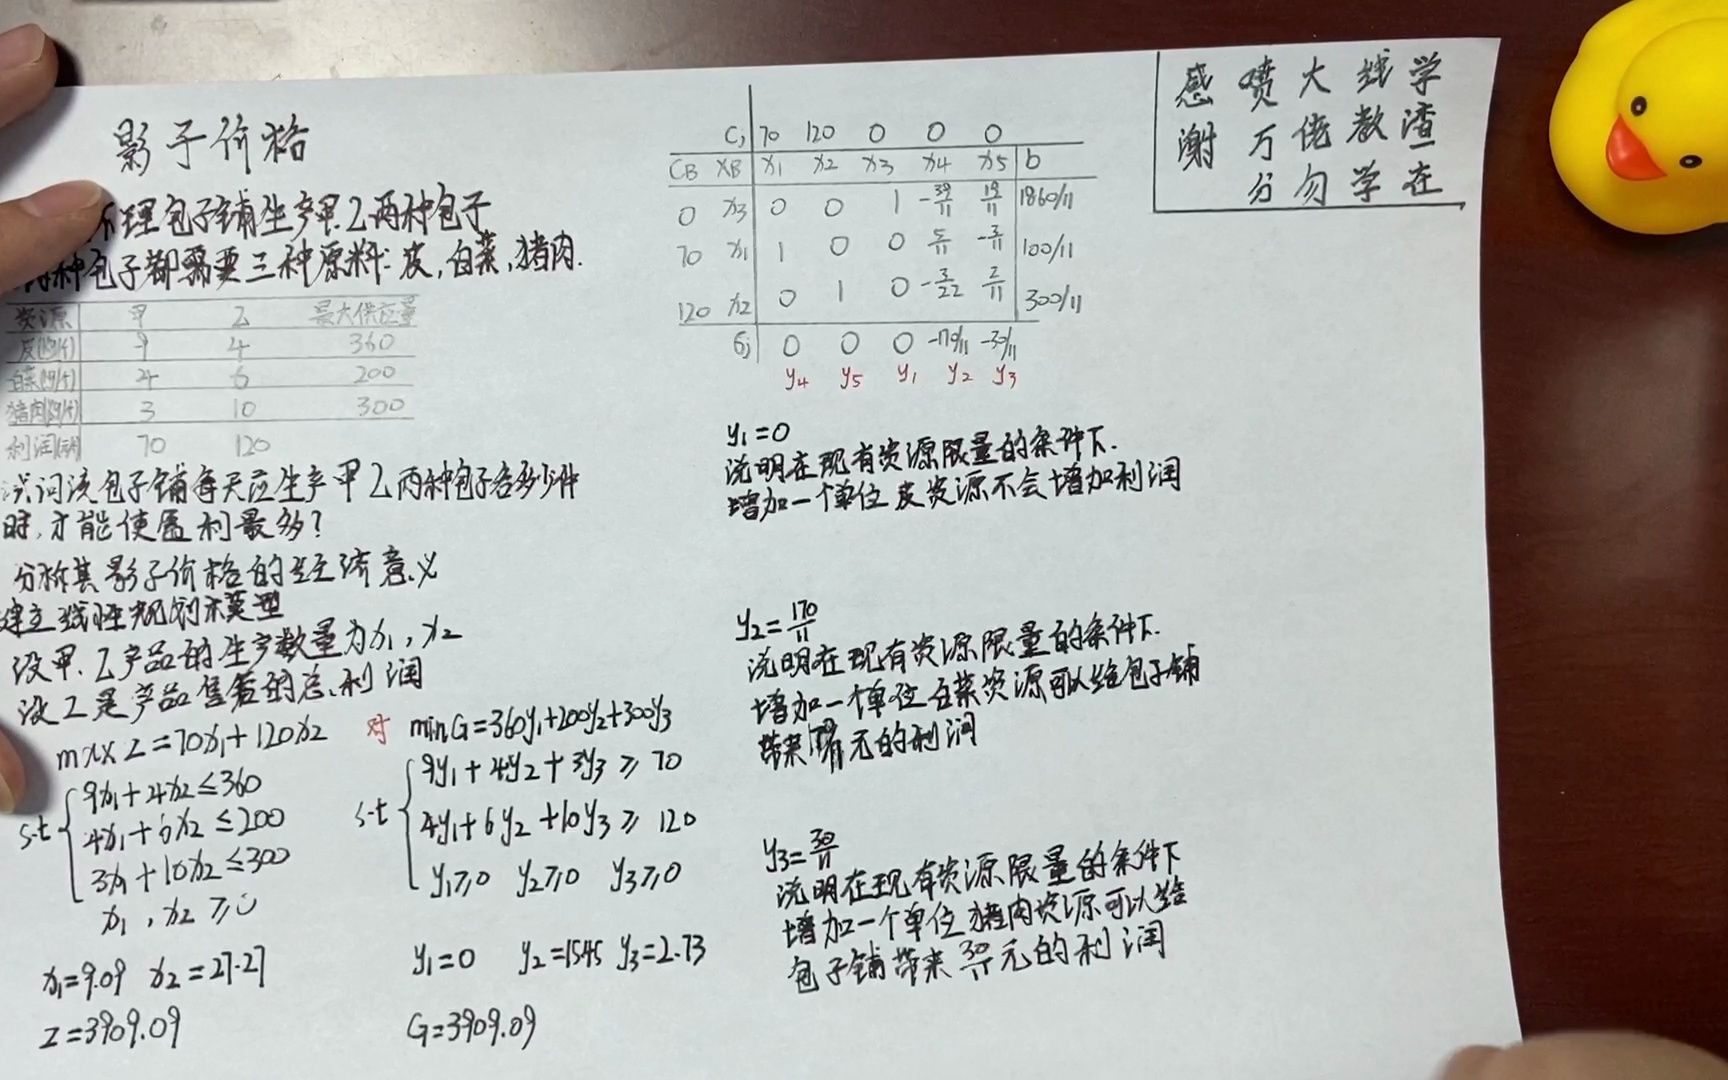 影子价格
不理包子铺生产甲.乙两种包子
两种包子都需要三种原料:皮,白菜,猪肉.
资源 甲 乙 最大供应量
皮 9 4 360
白菜 4 6 200
猪肉 3 10 300
利润 70 120
试问该包子铺每天应生产甲乙两种包子各多少件
时,才能使盈利最多?
分析其影子价格的经济意义
建立线性规划模型
设甲.乙产品的生产数量为x₁,x₂
设Z是产品售着的总利润
max Z=70x₁+120x₂
s.t
9x₁+4x₂≤360
4x₁+6x₂≤200
3x₁+10x₂≤300
x₁,x₂≥0
x₁=9.09 x₂=27.27
Z=3909.09
对 minG=360y₁+200y₂+300y₃
s.t
9y₁+4y₂+3y₃≥70
4y₁+6y₂+10y₃≥120
y₁≥0 y₂≥0 y₃≥0
y₁=0 y₂=1545 y₃=2.73
G=3909.09
Cj 70 120 0 0 0
CB XB x₁ x₂ x₃ x₄ x₅ b
0 x₃ 0 0 1 -39/11 19/11 1860/11
70 x₁ 1 0 0 5/11 -3/11 100/11
120 x₂ 0 1 0 -3/22 2/11 300/11
σj 0 0 0 -170/11 -30/11
y₄ y₅ y₁ y₂ y₃
y₁=0
说明在现有资源限量的条件下.
增加一个单位皮资源不会增加利润
y₂=170/11
说明在现有资源限量的条件下.
增加一个单位白菜资源可以给包子铺
带来元的利润
y₃=30/11
说明在现有资源限量的条件下
增加一个单位猪肉资源可以给
包子铺带来30/11元的利润
学渣在
线数学
大佬勿
喷万分
感谢